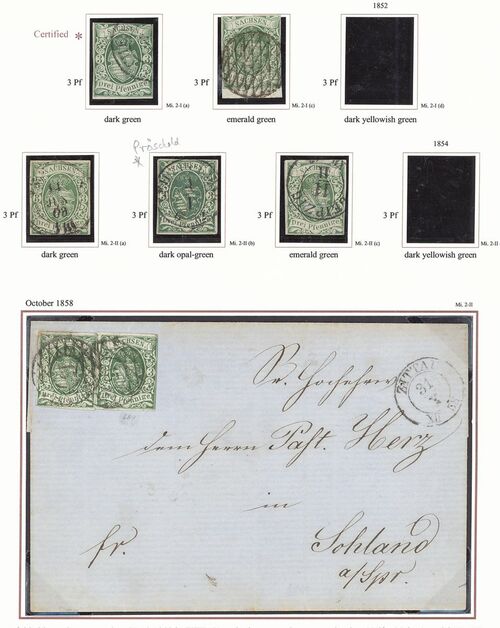 1852
Certified *
SACHSEN
SACHSEN
3 Pf
3 Pf
3 Pf
Drei Pfennige
Mi. 2-I (a)
Mi. 2-I (c)
Mi. 2-I (d)
dark green
emerald green
dark yellowish green
Pröschold
1854
SACHSEN
SACHSEN
3 Pf
3 Pf
3 Pf
3 Pf
Drei Pfennige
Mi. 2-II (a)
Mi. 2-II (b)
Mi. 2-II (c)
Mi. 2-II (d)
dark green
dark opal-green
emerald green
dark yellowish green
October 1858
Mi. 2-II
SACHSEN
SACHSEN
ZITTAU
31
Sr. Hochehrn
dem Herrn Past. Herz
in
fr.
Sohland
a/Spr.